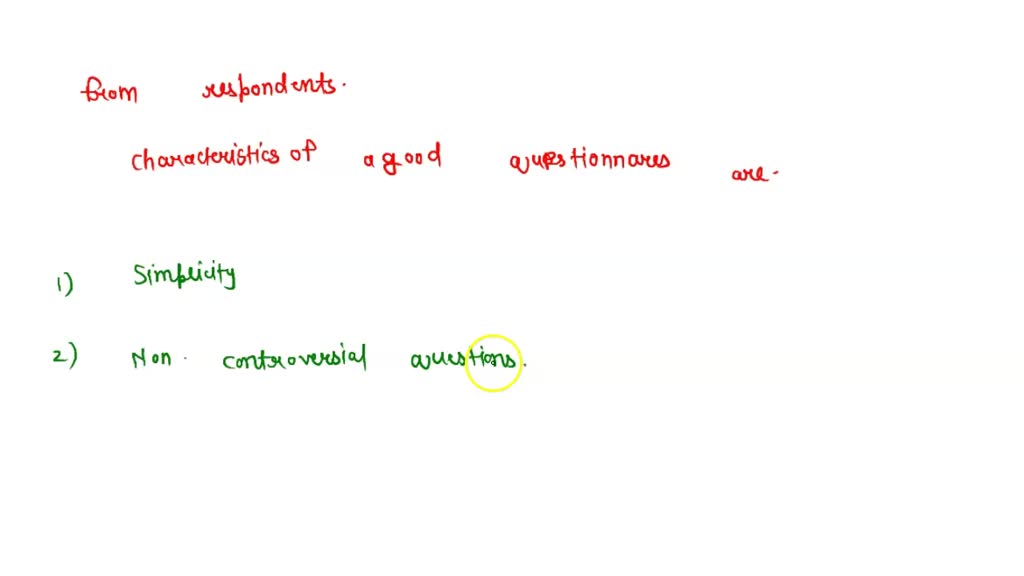 from respondents.
characteristics of a good questionnares are.
1) Simplicity
2) Non. controversial questions.